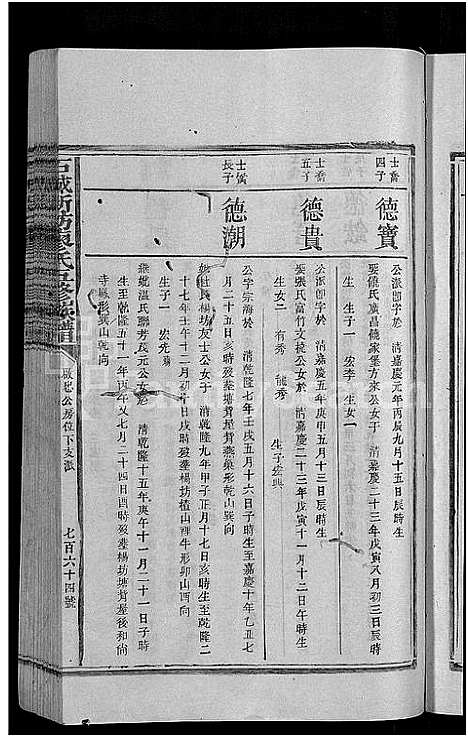 士喬
四子
德寶
公派卽字於 清嘉慶元年丙辰九月十五日辰時生
娶張氏富昌德家堡方來公女于 清嘉慶二十三年戊寅八月初三日辰時
生 生子一 宏李 生女一
士喬
五子
德貴
公派卽字於 清嘉慶五年庚申五月十三日辰時生
娶張氏富竹文後公女於 清嘉慶二十三年戊寅十一月十二日午時生
生女二 有秀 能秀 生子宏興
長子
德潮
公字宗海於 清乾隆七年壬戌五月十六日子時生至嘉慶十年乙丑七
月二十五日亥時歿塟塘背屋背燕巢形乾山巽向
氏楊坊友士公女于 清乾隆九年甲子正月十七日亥時生至乾隆二
十七年壬午十二月初六日戌時歿塟楊坊楂山裡牛形卯山酉向
生子一 宏先
温氏聰芳茂元公女於 清乾隆十五年庚午十一月二十一日子時
生至乾隆五十一年丙午又七月二十四日酉時歿塟楊坊塘背屋後和尚
寺形巽山乾向
石城
氏五修族譜
公房位下支派
七百六十四號